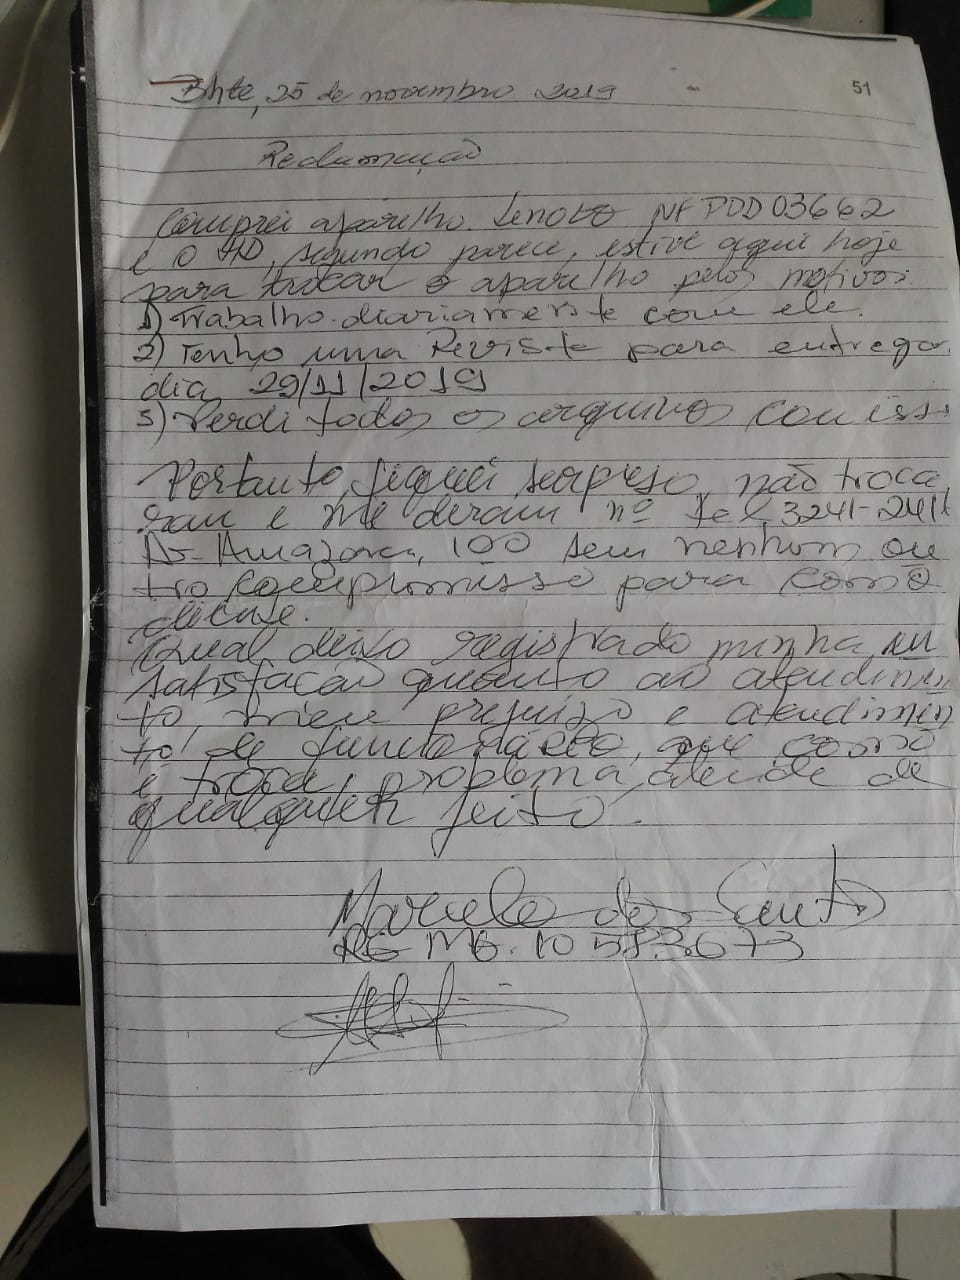 Bhte, 25 de novembro 2019
51
Reclamação
Comprei aparelho Lenovo NF PDD03662
e o HD, segundo parece, estive aqui hoje
para trocar o aparelho pelos motivos:
1) Trabalho diariamente com ele.
2) Tenho uma Revista para entregar
dia, 29/11/2019
3) Perdi todos os arquivos com iss
Portanto, fiquei surpreso, não troca
ram e me deram nº tel, 3241-241
Av- Amazonas, 100 sem nenhum ou
tro compromisso para como
cliente.
Qual deixo registrado minha in
satisfação quanto ao atendimen
to, meu prejuizo e atendimen
to de funcionário, que como
é troca, problema atende de
qualquer jeito.
Marcelo dos Santos
RG MG. 10 583.673